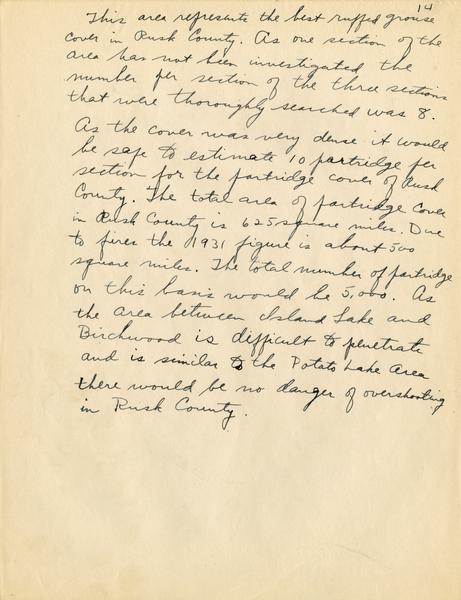 14
This area represents the best ruffed grouse
cover in Rusk County. As one section of the
area has not been investigated the
number per section of the three sections
that were thoroughly searched was 8.
As the cover was very dense it would
be safe to estimate 10 partridge per
section for the partridge cover of Rusk
County. The total area of partridge cover
in Rusk County is 625 square miles. Due
to fires the 1931 figure is about 500
square miles. The total number of partridge
on this basis would be 5,000. As
the area between Island Lake and
Birchwood is difficult to penetrate
and is similar to the Potato Lake Area
there would be no danger of overshooting
in Rusk County.